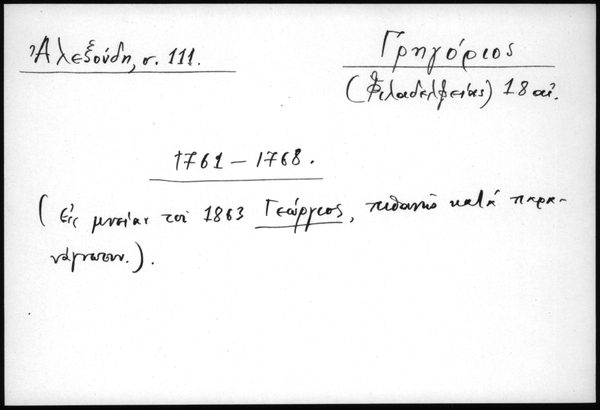 Ἀλεξούδη, σ. 111.
Γρηγόριος
(Φιλαδελφείας) 18 αἰ.
1761 – 1768.
(Εἰς μνείαν τοῦ 1863 Γεώργιος, πιθανῶς κατὰ παρα-
νάγνωσιν.).